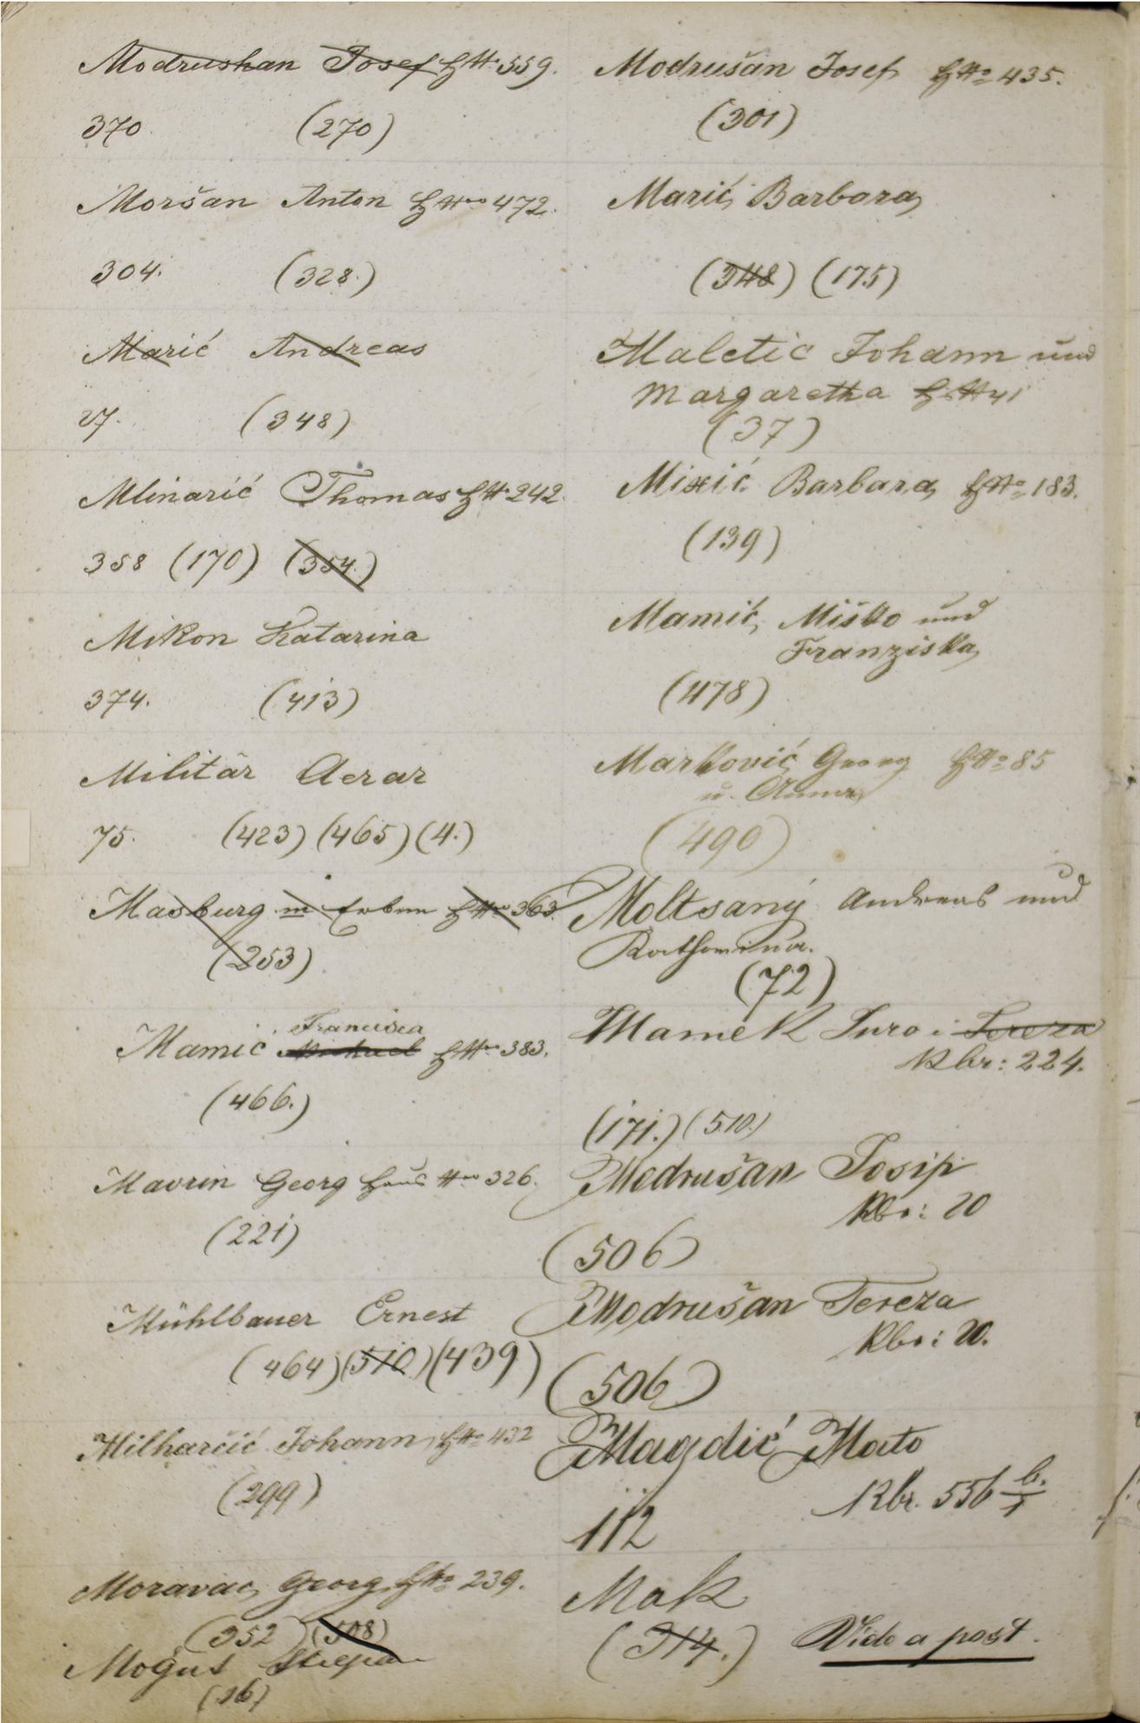 Modrushan Josef H № 559.
370 (270)
Moršan Anton H Nro 472.
304. (328.)
Marić Andreas
27. (348)
Mlinarić Thomas H № 242.
358 (170) (354.)
Mikon Katarina
374. (413)
Militär Aerar
75. (423) (465) (4.)
Masburg Erben H Nro 363.
(253)
Mamić Francisca Michael H Nro 383.
(466.)
Mavrin Georg Haus Nro 326.
(221)
Mühlbauer Ernest
(464) (510) (439)
Milharčić Johann H № 432
(299)
Moravac Georg H № 239.
(352) (508)
Moguš Stepan
(16)
Modrušan Josef H № 435.
(301)
Marić Barbara
(348) (175)
Maletic Johann und
Margaretha H № 41
(37)
Mixić Barbara H № 183.
(139)
Mamić, Miško und
Franziska
(478)
Marković Georg H № 85
u. Anna
(490)
Moltsany Andreas und
Katharina.
(72)
Mamek Juro i Tereza
Kbr: 224.
(171.) (510.)
Modrušan Josip
Kbr: 20
(506)
Modrušan Tereza
Kbr: 20.
(506)
Magdić Mato
Kbr. 556 b./1
112
Mak
(314.) Vide a post.